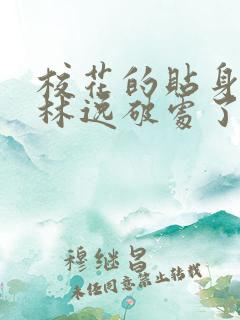 校花的贴身
林逸破处了
穆继昌
未经同意禁止转载